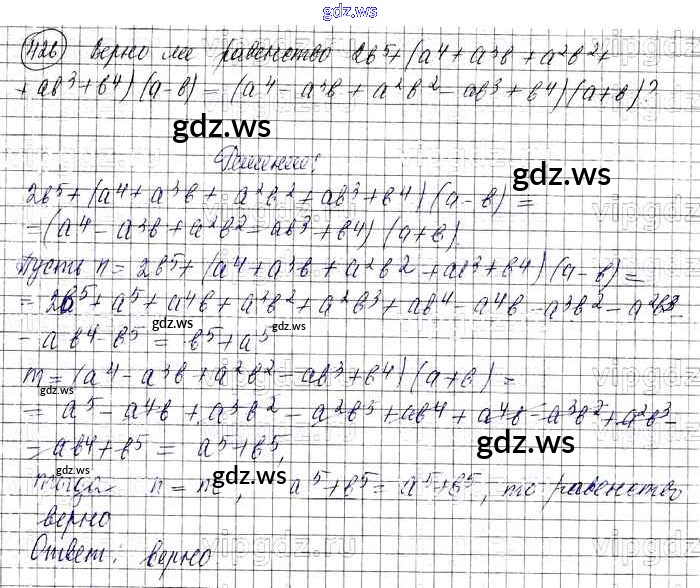 gdz.ws
1126 верно ли равенство 2b⁵+(a⁴+a³b+a²b²+
+ab³+b⁴)(a-b)=(a⁴-a³b+a²b²-ab³+b⁴)(a+b)?
gdz.ws
gdz.ws
Решение:
2b⁵+(a⁴+a³b+a²b²+ab³+b⁴)(a-b)=
=(a⁴-a³b+a²b²-ab³+b⁴)(a+b)
Пусть n=2b⁵+(a⁴+a³b+a²b²+ab³+b⁴)(a-b)=
=2b⁵+a⁵+a⁴b+a³b²+a²b³+ab⁴-a⁴b-a³b²-a²b³-
gdz.ws
gdz.ws
-ab⁴-b⁵=b⁵+a⁵
m=(a⁴-a³b+a²b²-ab³+b⁴)(a+b)=
gdz.ws
=a⁵-a⁴b+a³b²-a²b³+ab⁴+a⁴b-a³b²+a²b³-
gdz.ws
-ab⁴+b⁵=a⁵+b⁵,
gdz.ws
тогда n=m, a⁵+b⁵=a⁵+b⁵, то равенство
верно
Ответ: верно
vipgdz.ru